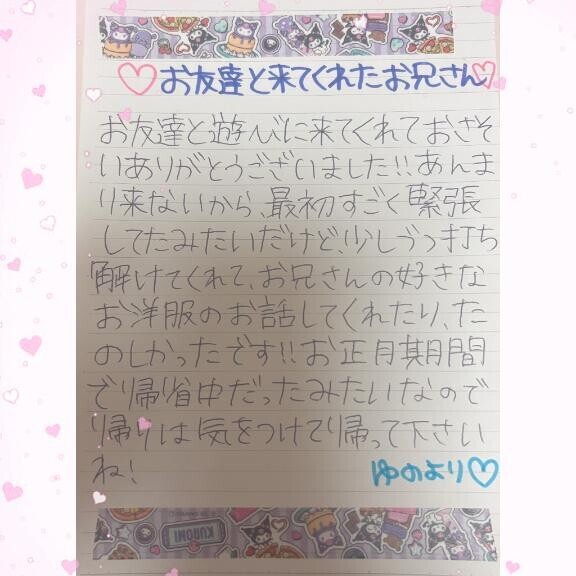 ♡お友達と来てくれたお兄さん♡
お友達と遊びに来てくれておさそ
いありがとうございました!!あんま
り来ないから、最初すごく緊張
してたみたいだけど、少しづつ打ち
解けてくれて、お兄さんの好きな
お洋服のお話してくれたり、た
のしかったです!!お正月期間
で帰省中だったみたいなので
帰りは気をつけて帰って下さい
ね!
ゆのより♡
KUROMI